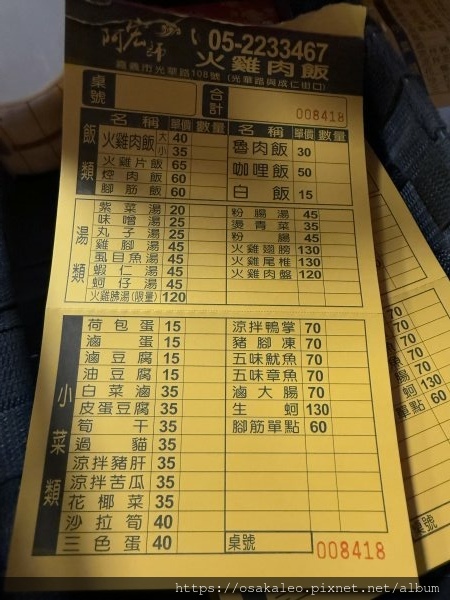 阿宏師
05-2233467
火雞肉飯
嘉義市光華路108號 (光華路與成仁街口)
桌號
合計
008418
飯類
名稱 單價 數量 名稱 單價 數量
火雞肉飯 大 40 魯肉飯 30
小 35
火雞片飯 65 咖哩飯 50
焢肉飯 60
腳筋飯 60 白飯 15
湯類
紫菜湯 20 粉腸湯 45
味噌湯 25 燙青菜 35
丸子湯 25 粉腸 45
雞腳湯 45 火雞翅膀 130
虱目魚湯 45 火雞尾椎 130
蝦仁湯 45 火雞肉盤 120
蚵仔湯 45
火雞胇湯(限量) 120
小菜類
荷包蛋 15 涼拌鴨掌 70
滷蛋 15 豬腳凍 70
滷豆腐 15 五味魷魚 70
油豆腐 15 五味章魚 70
白菜滷 35 滷大腸 70
皮蛋豆腐 35 生蚵 130
筍干 35 腳筋單點 60
過貓 35
涼拌豬肝 35
涼拌苦瓜 35
花椰菜 35
沙拉筍 40
三色蛋 40 桌號 008418
130
單點 60
https://osakaleo.pixnet.net/album